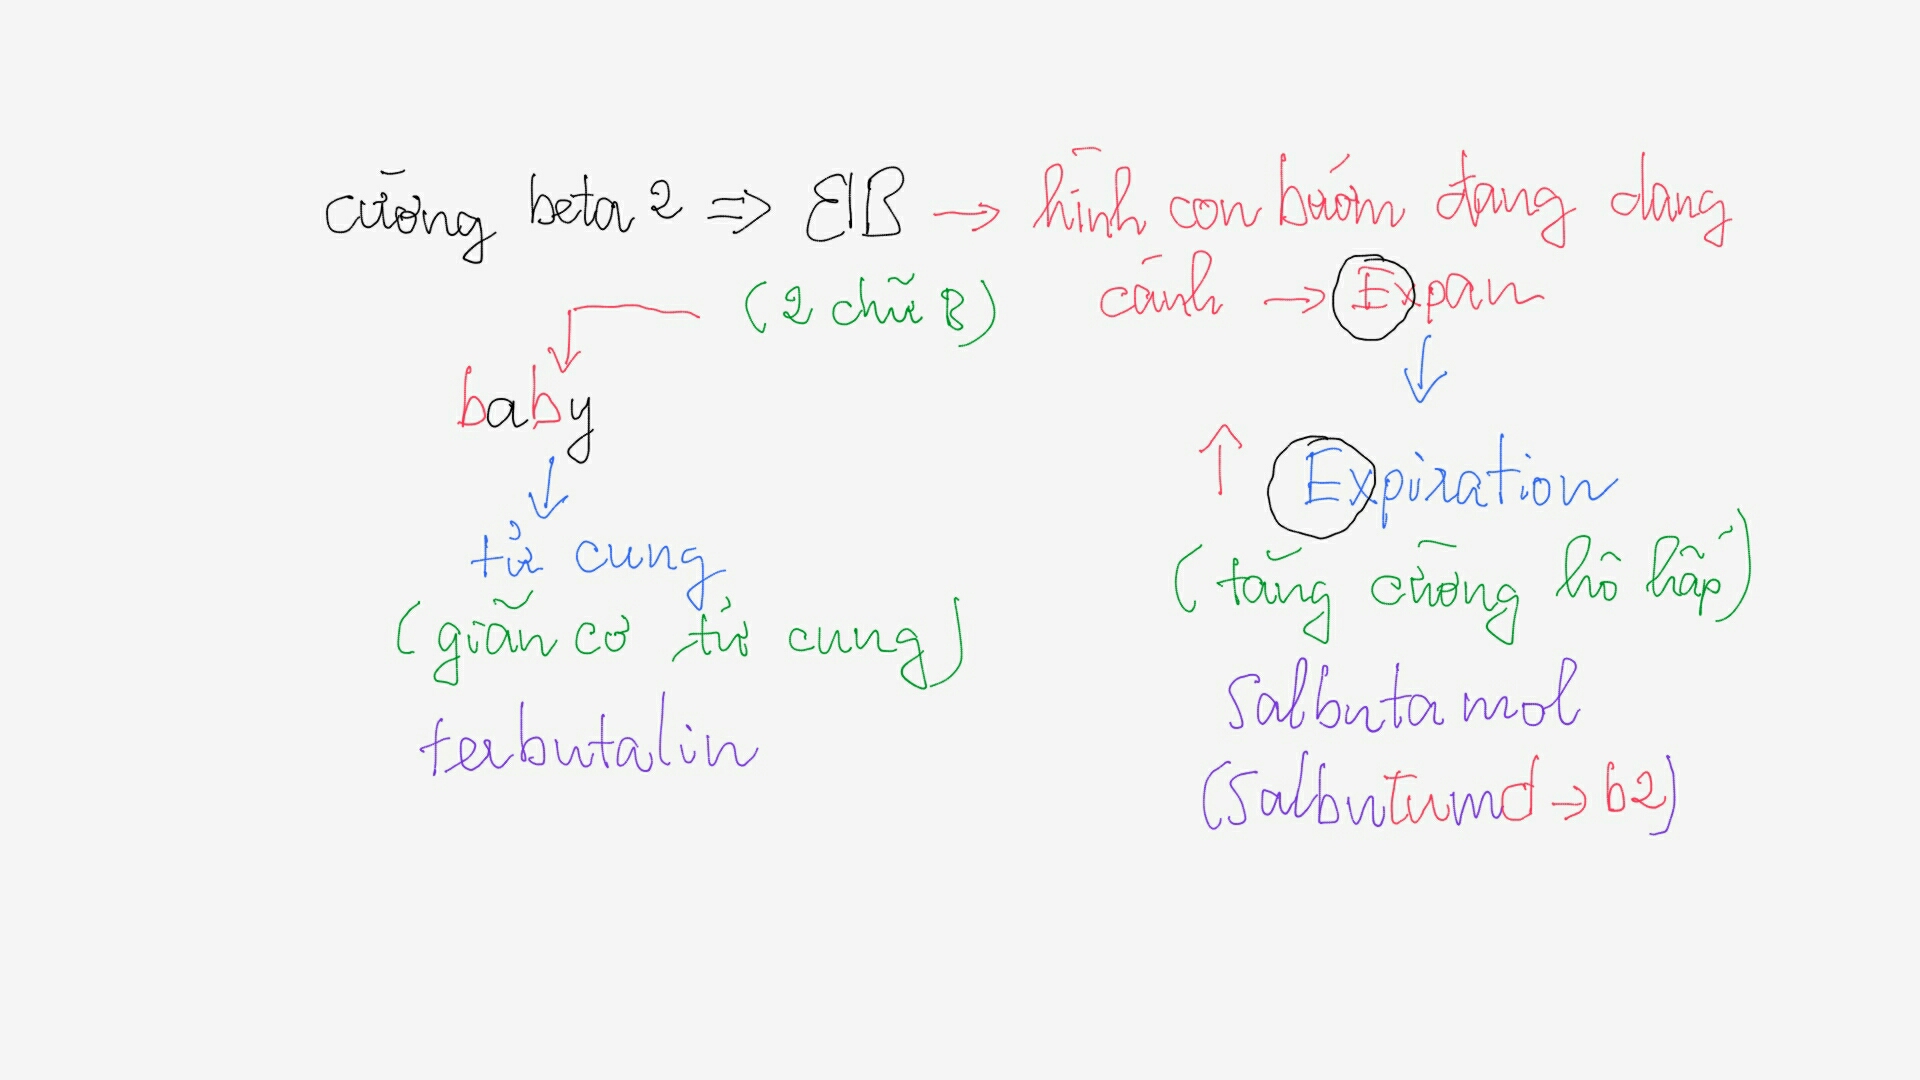 cường beta 2 => BB → hình con bướm đang dang
cánh → Expan
(2 chữ B)
baby
↓
tử cung
(giãn cơ tử cung)
terbutalin
↓
↑ Expiration
(tăng cường hô hấp)
Salbutamol
(Salbutumol → b2)